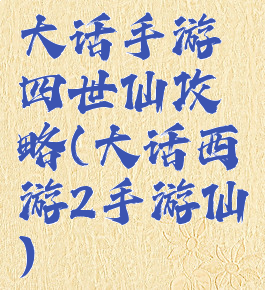 大话手游
四世仙攻
略(大话西
游2手游仙
)